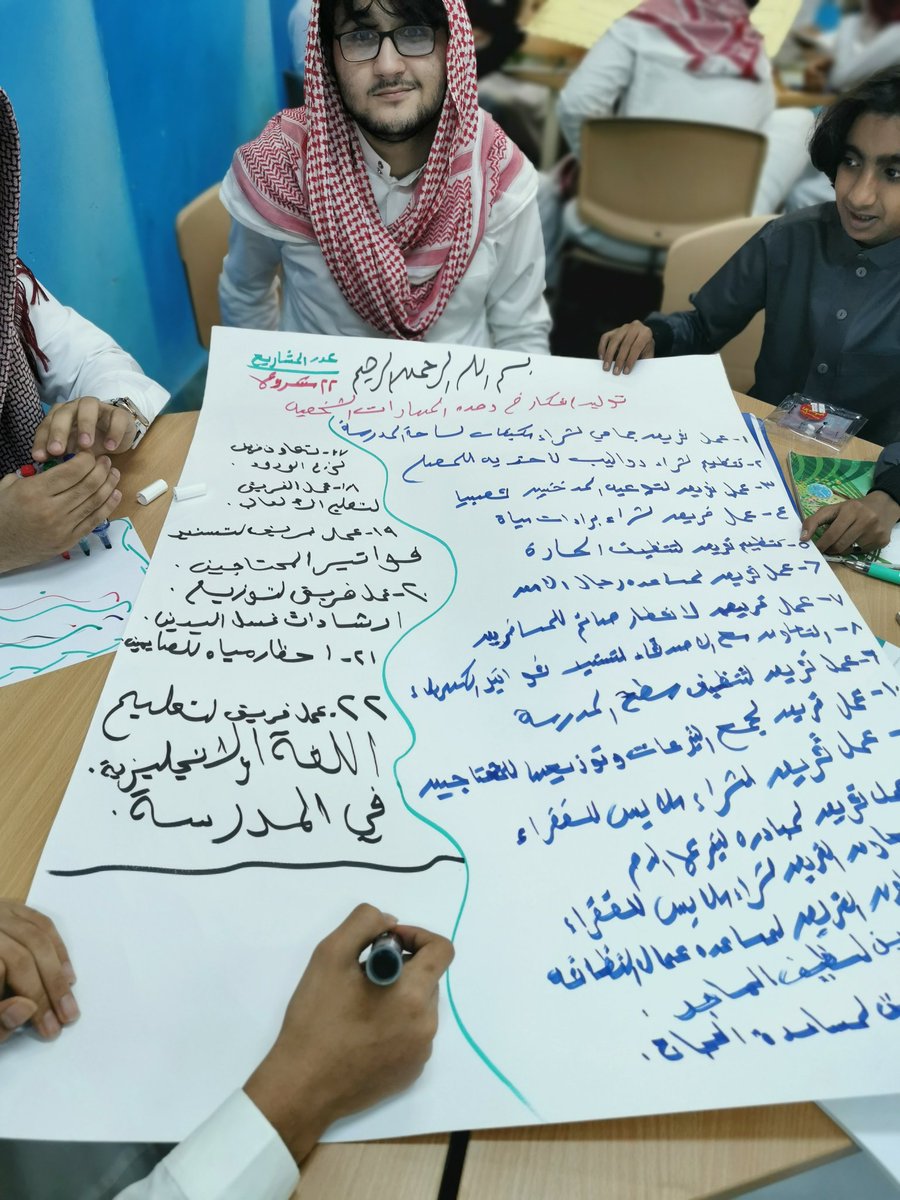 بسم الله الرحمن الرحيم
عدد المشاريع
٢٢ مشروعًا
توليد افكار في وحده المهارات الشخصيه
١- عمل فريق جماعي لشراء مكيفات لساحة المدرسة
٢- تنظيم لشراء دواليب لاحذيه للمصلى
٣- عمل فريق لتوعيه المدخنين شعبيا
٤- عمل فريق لشراء برادات مياة
٥- تنظيم فريق لتنظيف الحارة
٦- عمل فريق لمساعده رجال الامن
٧- عمل فريق لافطار صائم للمسافرين
٨- التعاون مع الاصدقاء لتسديد فواتير الكهرباء
٩- عمل فريق لتنظيف سطح المدرسة
١٠- عمل فريق لجمع التبرعات وتوزيعها للمحتاجين
عمل فريق لشراء ملابس للفقراء
عمل فريق لمبادره لتبرع الدم
الفريق لشراء ملابس للفقراء
الفريق لمساعده عمال النظافه
لتنظيف المساجد .
لمساعدة الحجاج .
١٧-
لزرع الورود .
١٨- عمل الفريق
لتعليم الألعاب .
١٩- عمل فريق لتسديد
فواتير المحتاجين .
٢٠- عمل فريق لتوزيع
ارشادات غسل اليدين .
٢١- احظار مياه للمصابين
٢٢- عمل فريق لتعليم
اللغة الإنجليزية
في المدرسة .